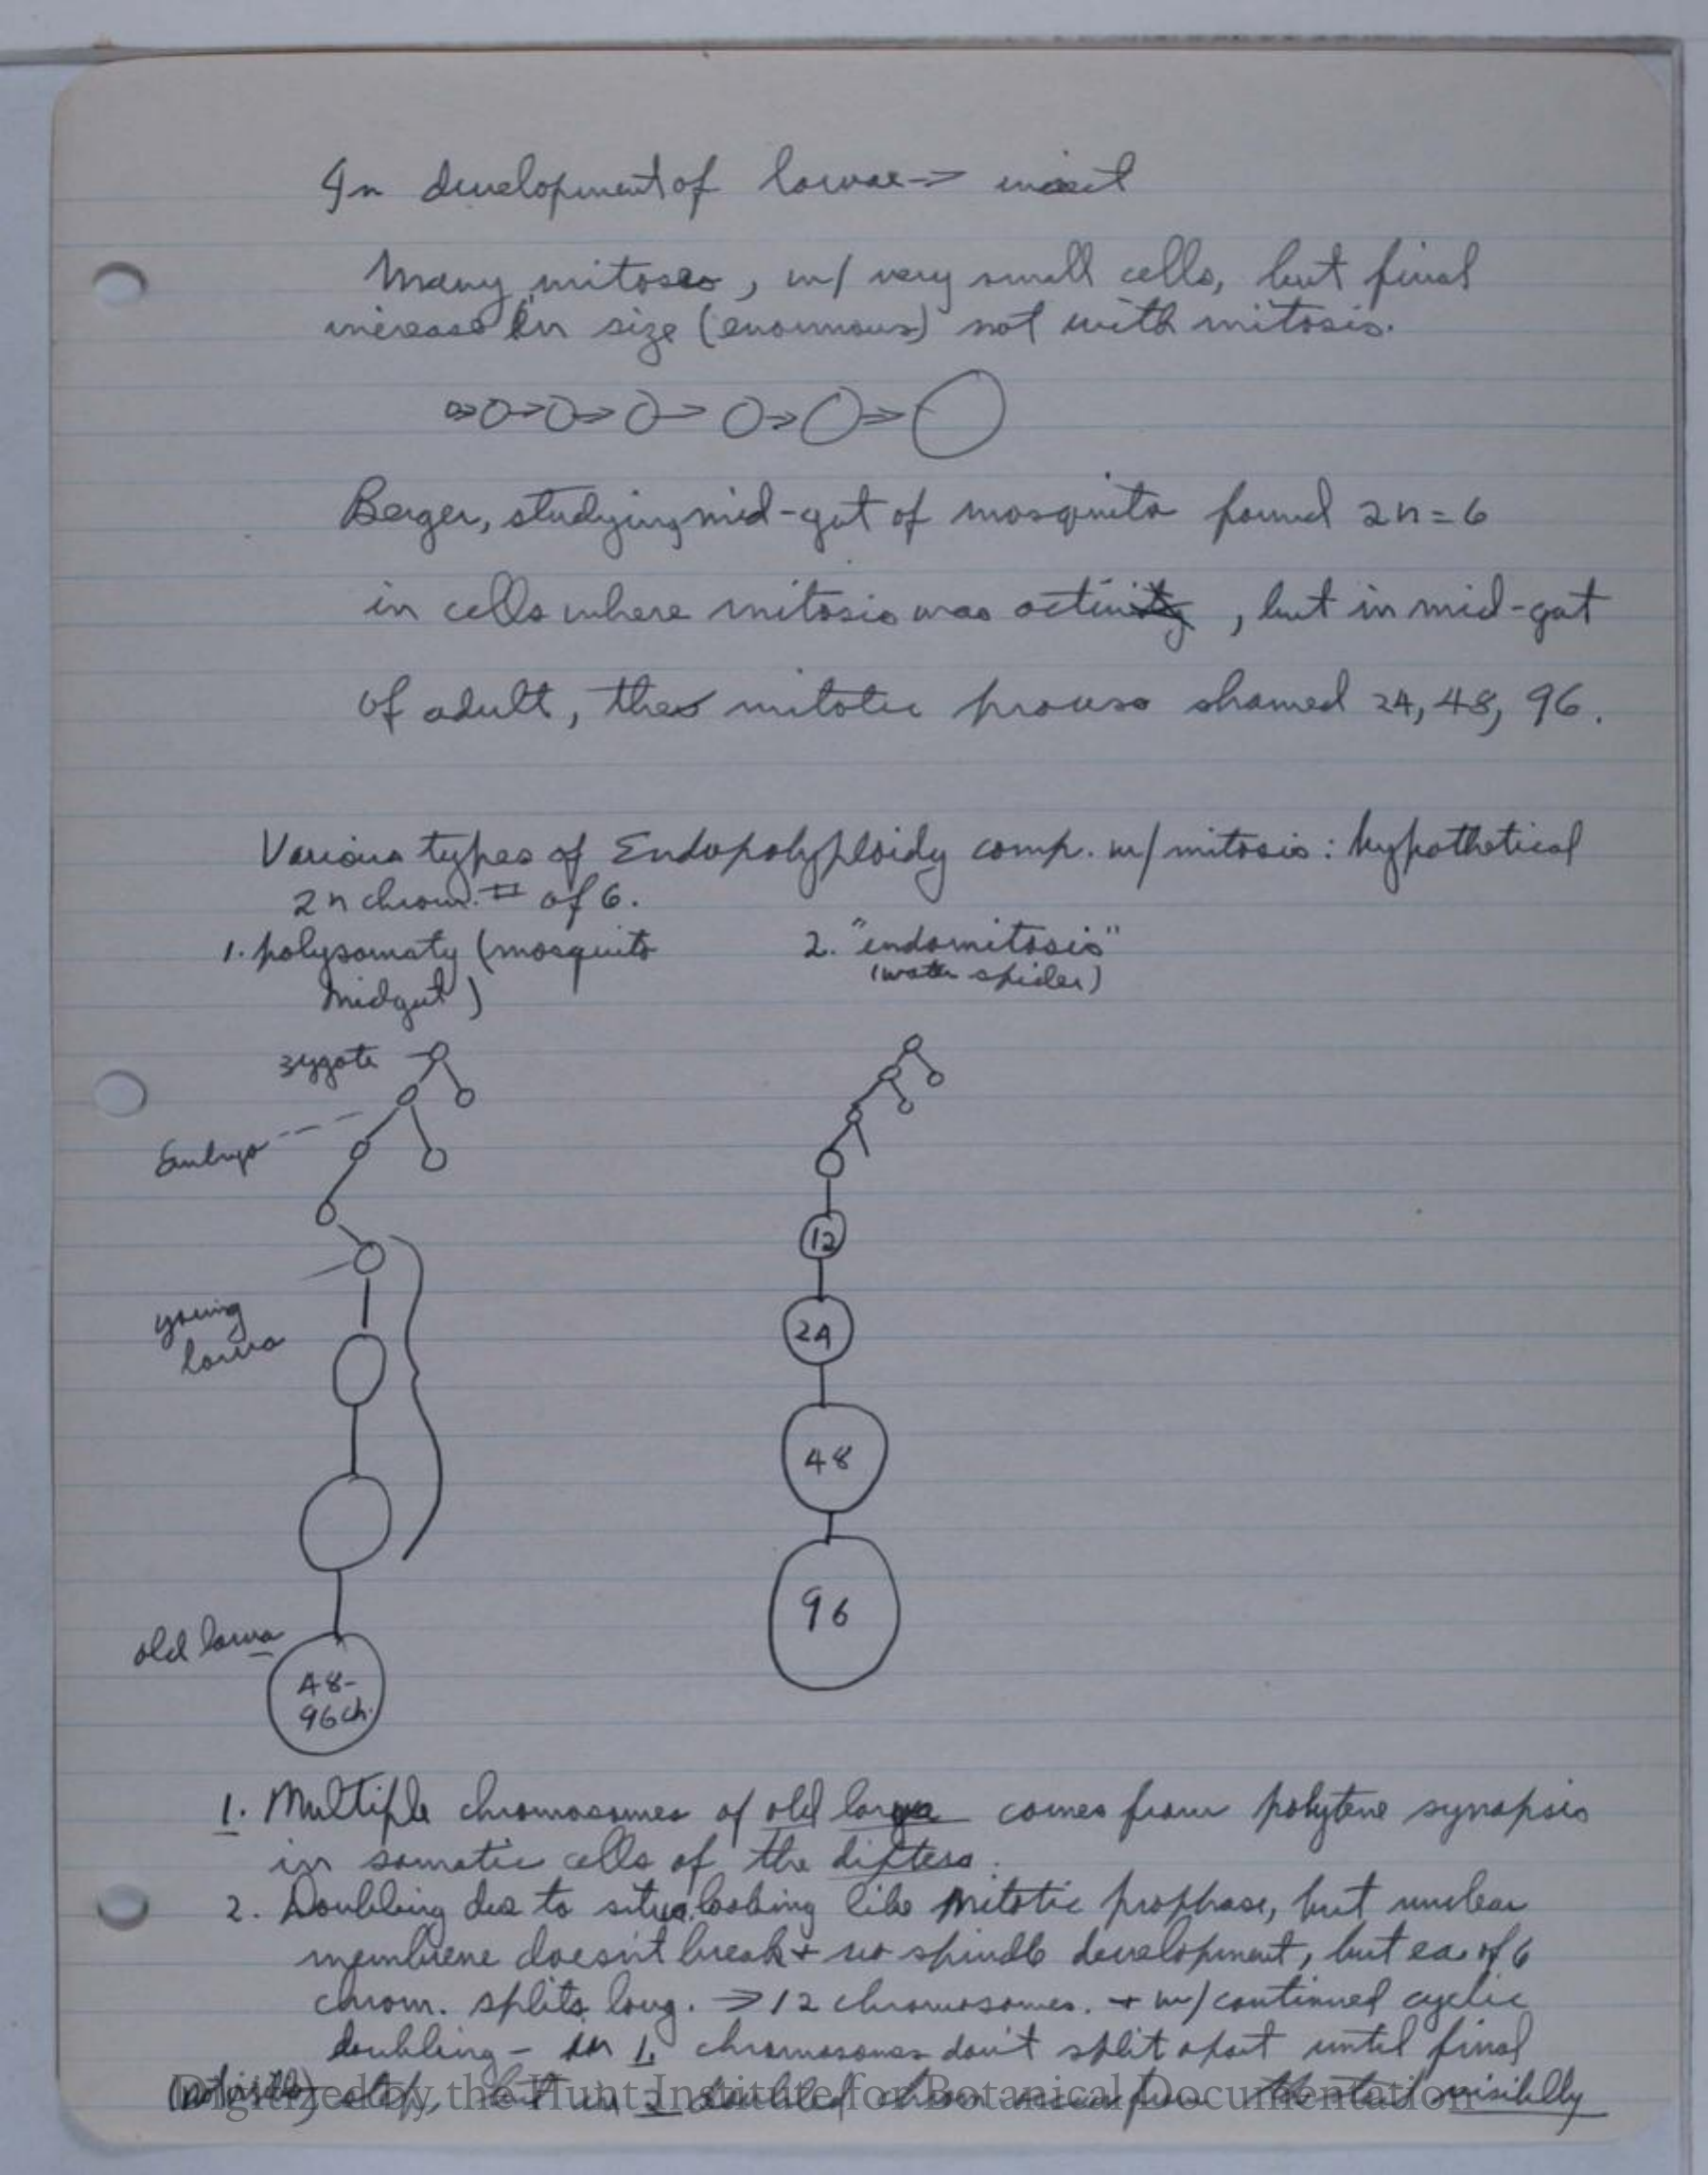 In development of larvae → insect
Many mitoses, w/ very small cells, but final
increase in size (enormous) not with mitosis.
Berger, studying mid-gut of mosquito found 2n=6
in cells where mitosis was activity, but in mid-gut
of adult, the mitotic process showed 24, 48, 96.
Various types of Endopolyploidy comp. w/ mitosis: hypothetical
2n chrom. # of 6.
1. polysomaty (mosquito
midgut)
2. "endomitosis"
(water spider)
zygote
Embryo
12
young
larva
24
48
96
old larva
48-
96 ch.
1. Multiple chromosomes of old larva comes from polytene synapsis
in somatic cells of the diptera.
2. Doubling due to situa. looking like mitotic prophase, but nuclear
membrene doesn't break + no spindle development, but ea. of 6
chrom. splits long. → 12 chromosomes. + w/ continued cyclic
doubling - in 1. chromosomes don't split apart until final
(not visible) step, but in 2 doubled chrom visibly
Digitized by the Hunt Institute for Botanical Documentation